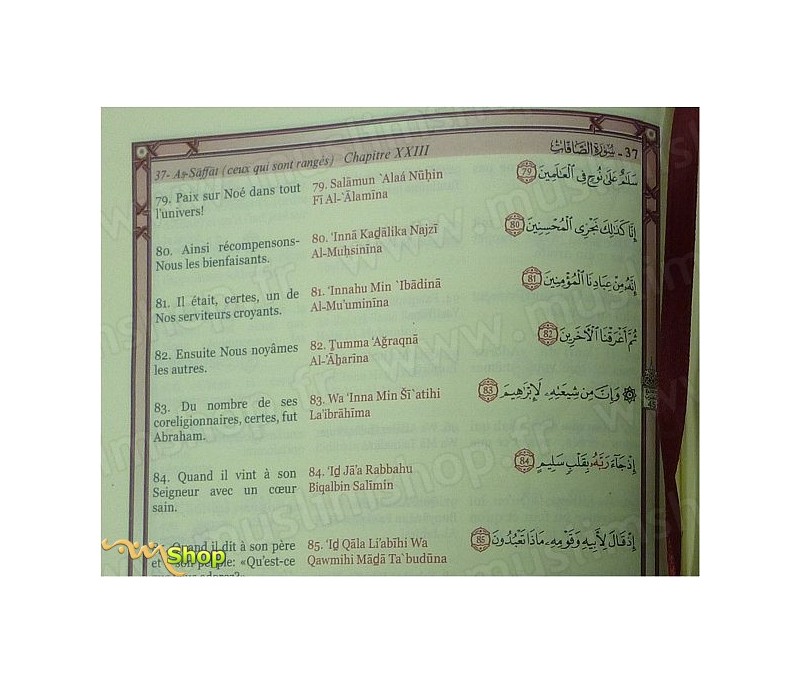 37- Aṣ-Sāffāt (ceux qui sont rangés) Chapitre XXIII
37 - سُورَةُ الصَّافَّات
79. Paix sur Noé dans tout
l'univers!
79. Salāmun `Alaá Nūĥin
Fī Al-`Ālamīna
سَلَٰمٌ عَلَىٰ نُوحٍ فِي ٱلْعَٰلَمِينَ 79
80. Ainsi récompensons-
Nous les bienfaisants.
80. 'Innā Kaḏālika Najzī
Al-Muĥsinīna
إِنَّا كَذَٰلِكَ نَجْزِي ٱلْمُحْسِنِينَ 80
81. Il était, certes, un de
Nos serviteurs croyants.
81. 'Innahu Min `Ibādinā
Al-Mu'uminīna
إِنَّهُۥ مِنْ عِبَادِنَا ٱلْمُؤْمِنِينَ 81
82. Ensuite Nous noyâmes
les autres.
82. Ṯumma 'Aġraqnā
Al-'Āḫarīna
ثُمَّ أَغْرَقْنَا ٱلْءَاخَرِينَ 82
83. Du nombre de ses
coreligionnaires, certes, fut
Abraham.
83. Wa 'Inna Min Šī`atihi
La'ibrāhīma
۞ وَإِنَّ مِن شِيعَتِهِۦ لَإِبْرَٰهِيمَ 83
84. Quand il vint à son
Seigneur avec un cœur
sain.
84. 'Iḏ Jā'a Rabbahu
Biqalbin Salīmin
إِذْ جَآءَ رَبَّهُۥ بِقَلْبٍ سَلِيمٍ 84
Quand il dit à son père
et son peuple: «Qu'est-ce
85. 'Iḏ Qāla Li'abīhi Wa
Qawmihi Māḏā Ta`budūna
إِذْ قَالَ لِأَبِيهِ وَقَوْمِهِۦ مَاذَا تَعْبُدُونَ 85
Shop
www.muslimshop.fr